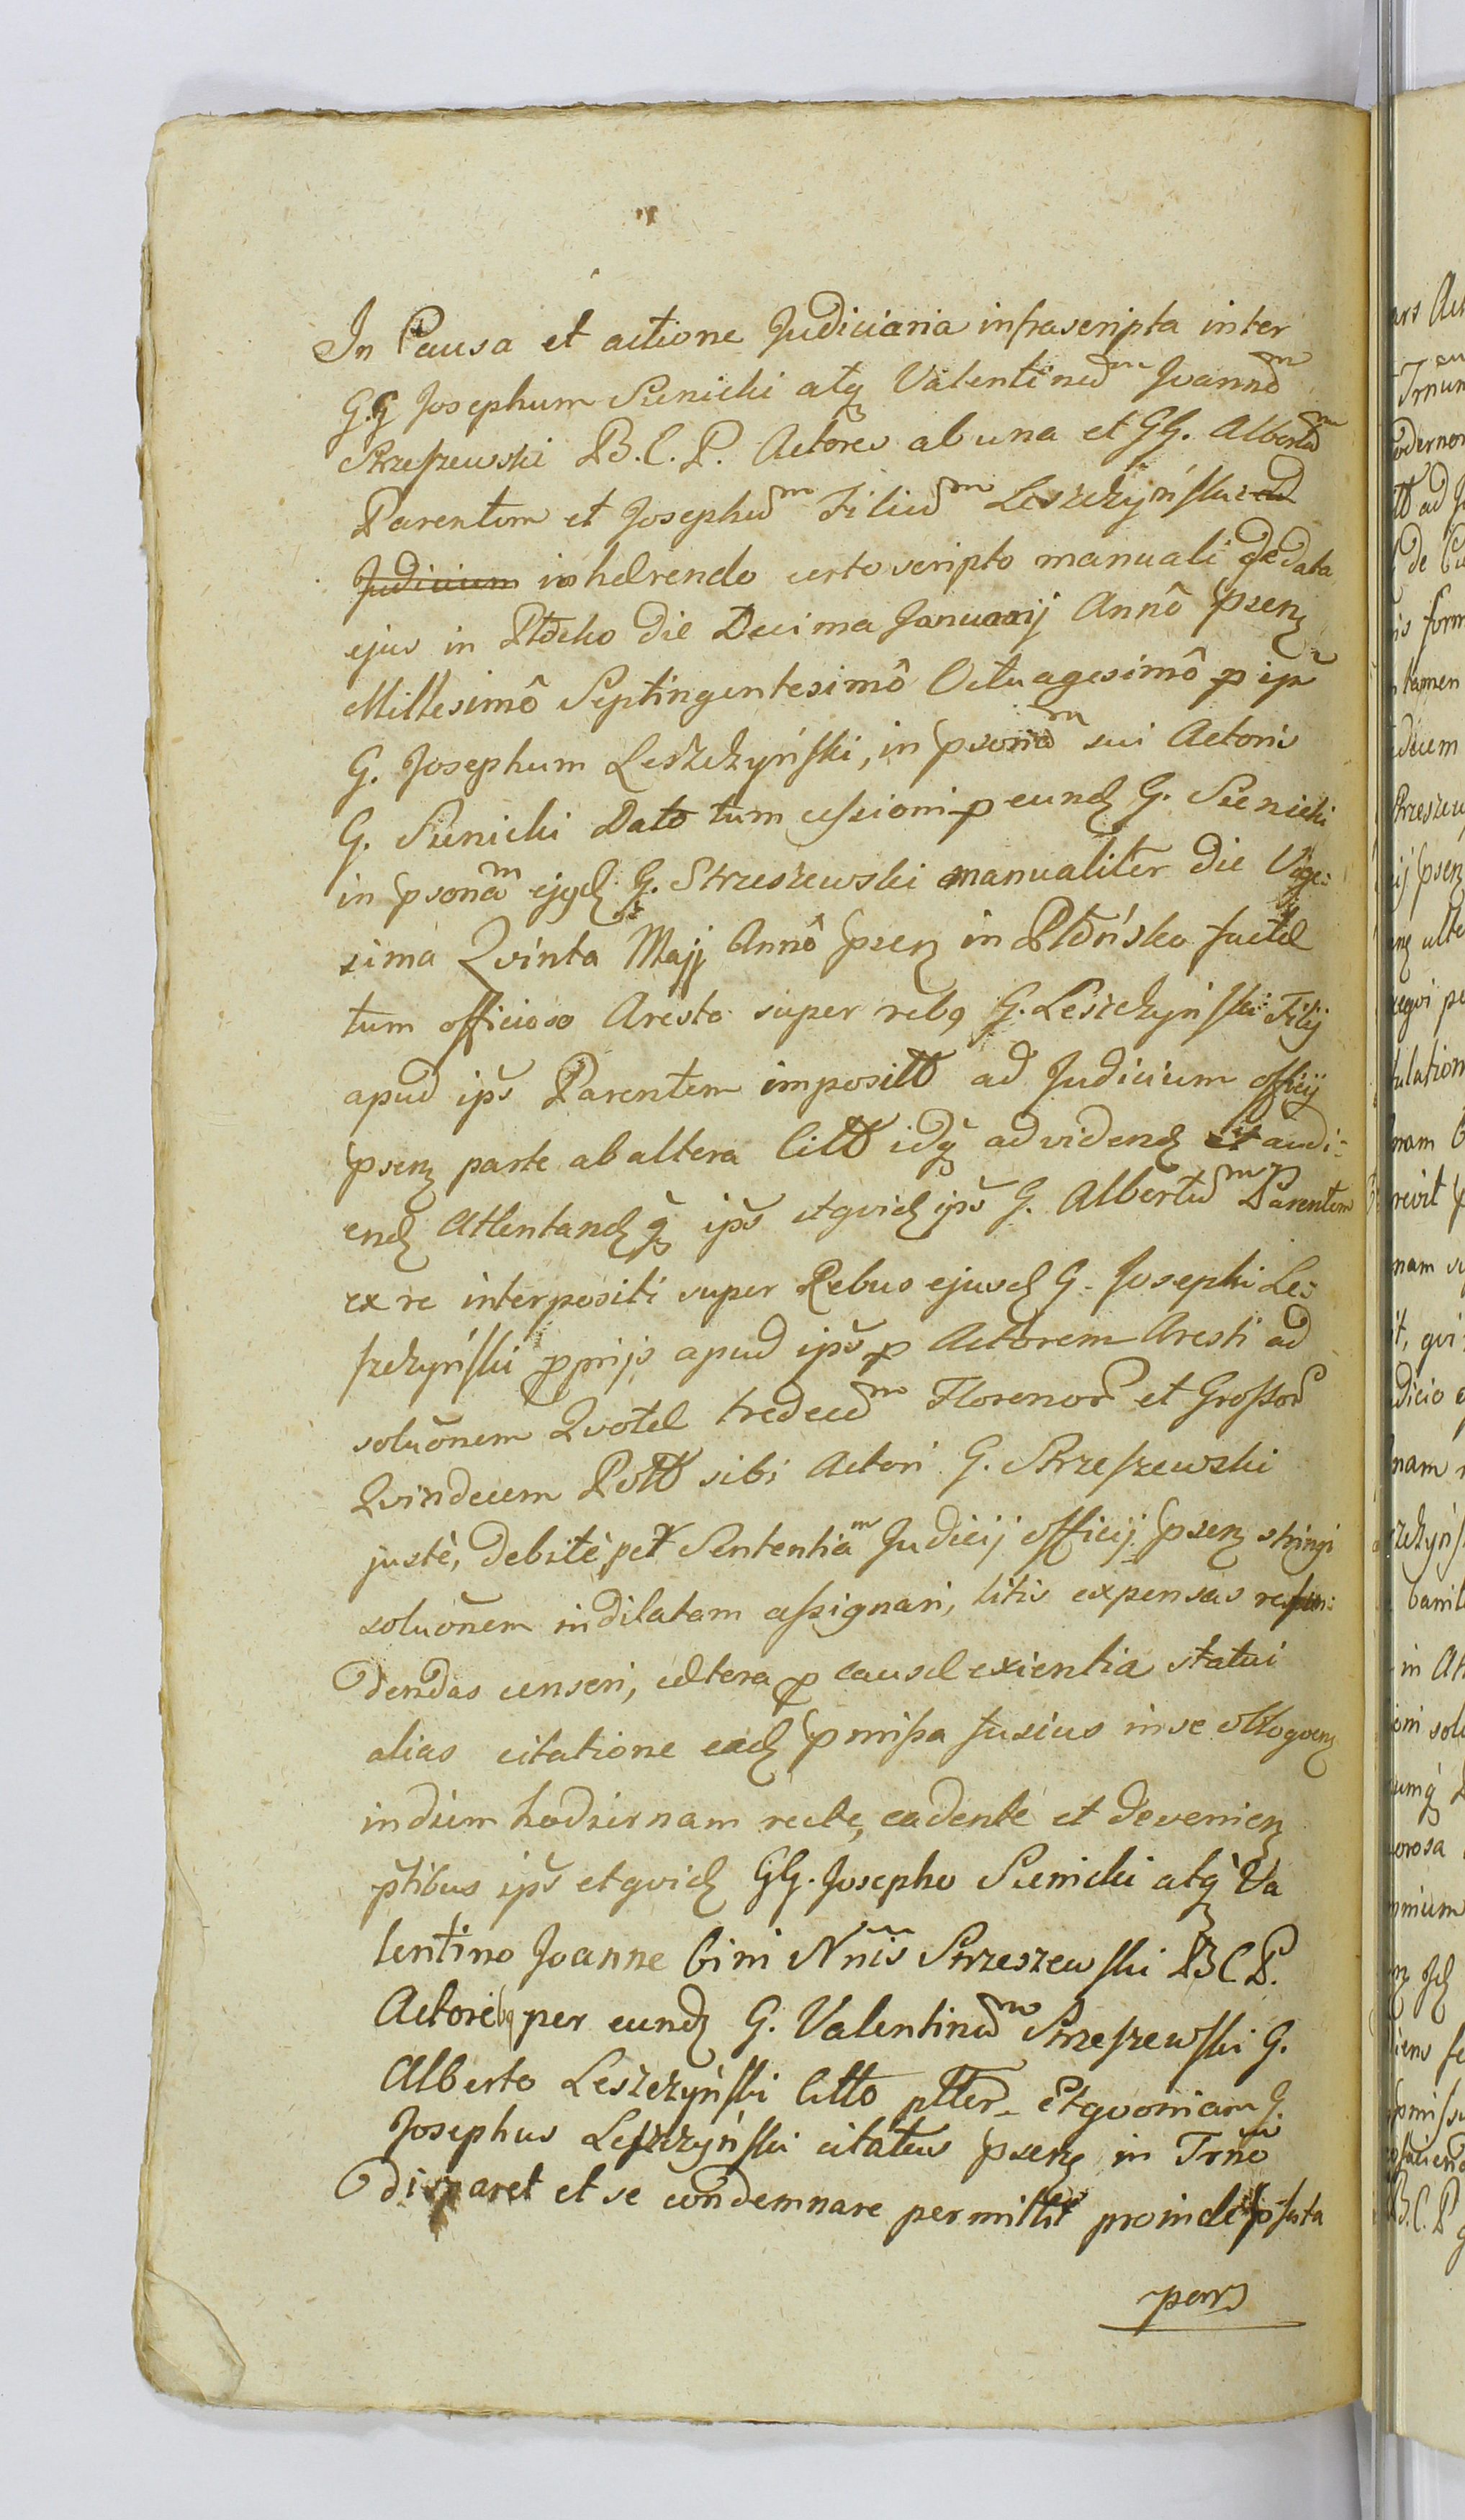 In Causa et actione Judiciaria infrascripta inter
G.G Josephum Sienicki atq Valentinũm Joannẽm
Strzeszewski B.C.P. Actores ab una et GG. Albertũm
Parentem et Josephũm Filiũm Leszczyński ad
Judicium inhærendo certo scripto manuali de data
ejus in Płocko die Decima Januarij Annô psenz
Millesimô Septingentesimô Octuagesimô p ipũ
G. Josephum Leszczyński, in psonãm sui Actoris
G. Sienicki Dato tum cessioni p eund G. Sienicki
in psonãm ejgd G. Strzeszewski manualiter die Vige:
sima Qvinta Maji Annô psenz in Płońsko factæ
tum officioso Aresto super rebq G. Leszczyński Filij
apud ips Parentem impositt ad Judicium officij
psenz parte ab altera Citt idq ad videnđ et audi:
enđ Attentanđ q ips etqvid ips G. Albertũm Parentem
ex re interpositi super Rebus ejusd G. Josephi Les
szczyński pprijs apud ips p Actorem Aresti ad
soluõnem Qvotæ tredecĩm Florenor et Grossor
Qvindecem Poltt sibi Actori G. Strzeszewski
justè, debitè pet Sententiam Judicij officij psenz stringi
soluõnem indilatam assignari, litis expensas refun:
dendas censeri, cætera p causæ exientia statui
alias citatione eađ pmissa fusius in se obloqvenz
in diem hodiernam recte, cadente et devenienz
ptibus ips etqvid GG. Josepho Sienicki atq Va
lentino Joanne bini Nñis Strzeszewski B C P.
Actorebq per eunđ G. Valentinũm Strzeszewski G.
Alberto Leszczyński Citto ptter. Etqvoniam G.
Josephus Leszczyński citatus psenz in Trñō
disparet et se condemnare permittit proinde pfata
pars